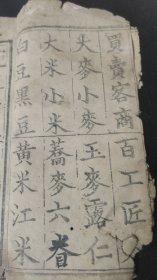 買賣客商百工匠
大麥小麥玉麥露仁
大米小米蕎麥六眷
白豆黑豆黃米江米